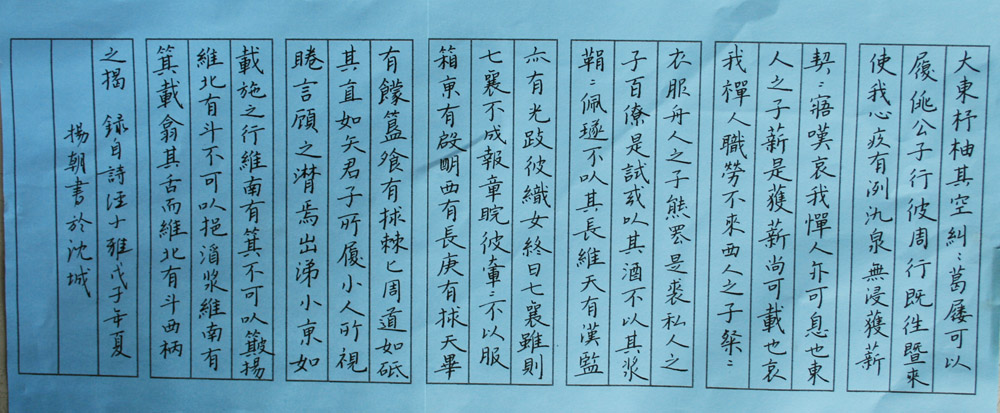 大東杼柚其空糾〻葛屨可以
履佻公子行彼周行既往暨來
使我心疚有冽氿泉無浸獲薪
契〻寤嘆哀我憚人亦可息也東
人之子薪是獲薪尚可載也哀
我憚人職勞不來西人之子粲〻
衣服舟人之子熊羆是裘私人之
子百僚是試或以其酒不以其漿
鞙〻佩璲不以其長維天有漢監
亦有光跂彼織女終日七襄雖則
七襄不成報章睆彼〻不以服
箱東有啟明西有長庚有捄天畢
有饛簋飧有捄棘匕周道如砥
其直如矢君子所履小人所視
睠言顧之潸焉出涕小東如
載施之行維南有箕不可以簸揚
維北有斗不可以挹酒漿維南有
箕載翕其舌而維北有斗西柄
之揭 錄自詩经小雅戊子年夏
楊朝書於沈城